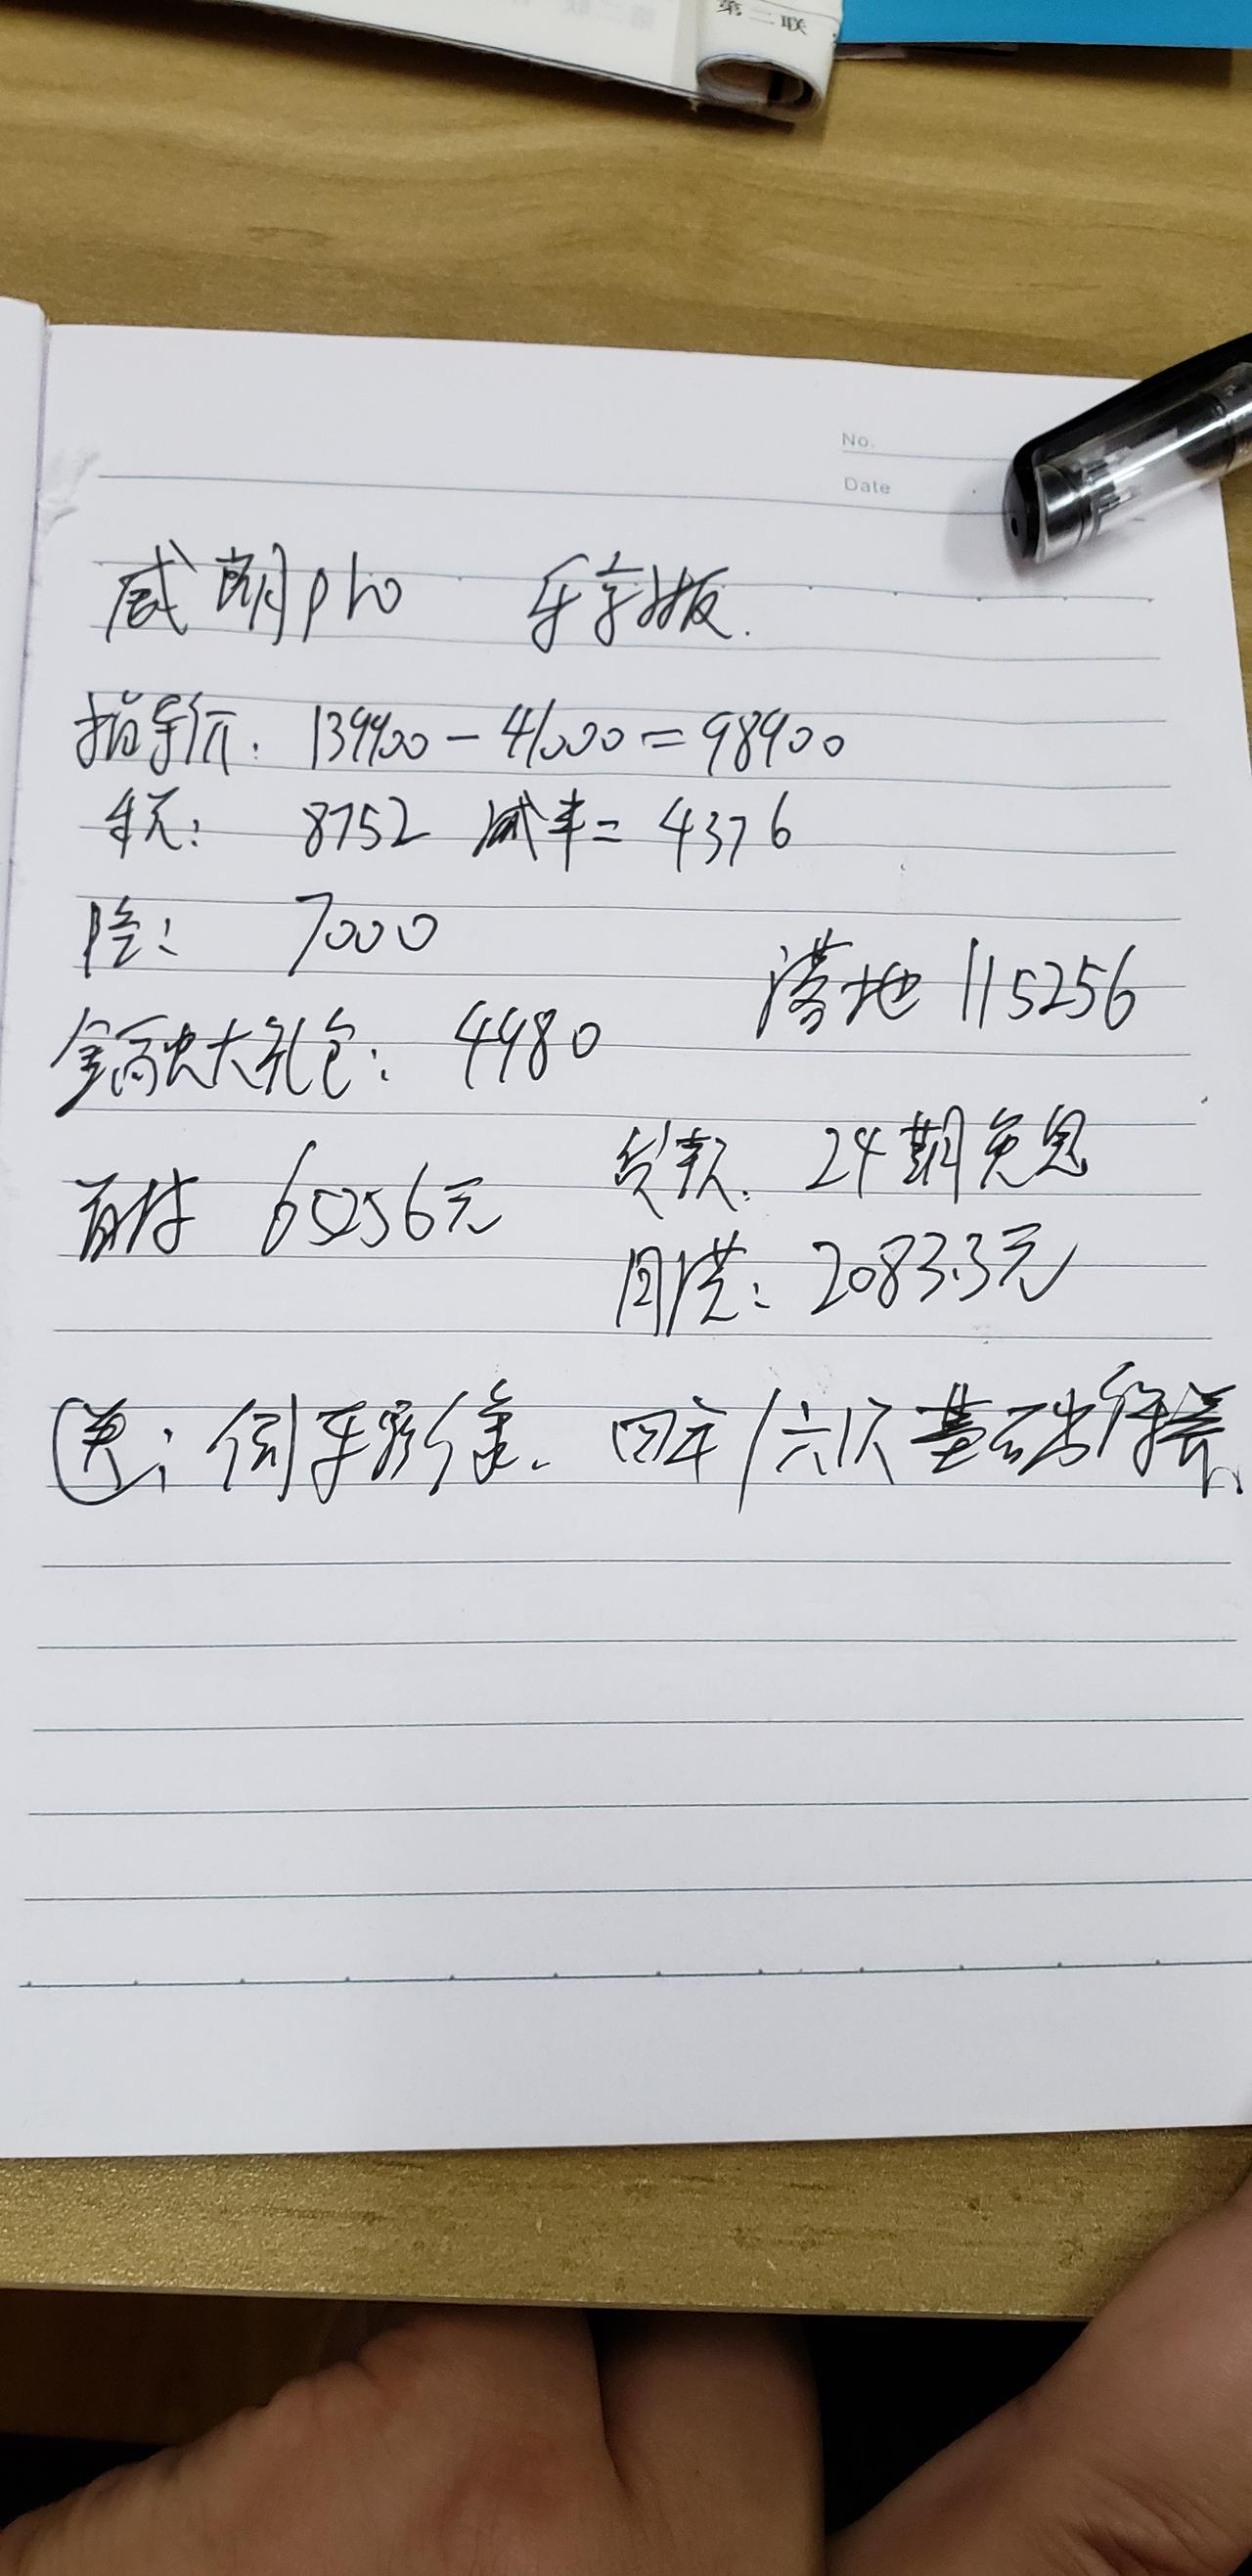 第二联
No.
Date
威朗pro 乐享版.
指导价: 139900-41000=98900
车税: 8752 减半=4376
险: 7000
落地 115256
金融大礼包: 4980
首付 65256元
贷款: 24期免息
月供: 2083.3元
送: 倒车影像、四年/六次基础保养、